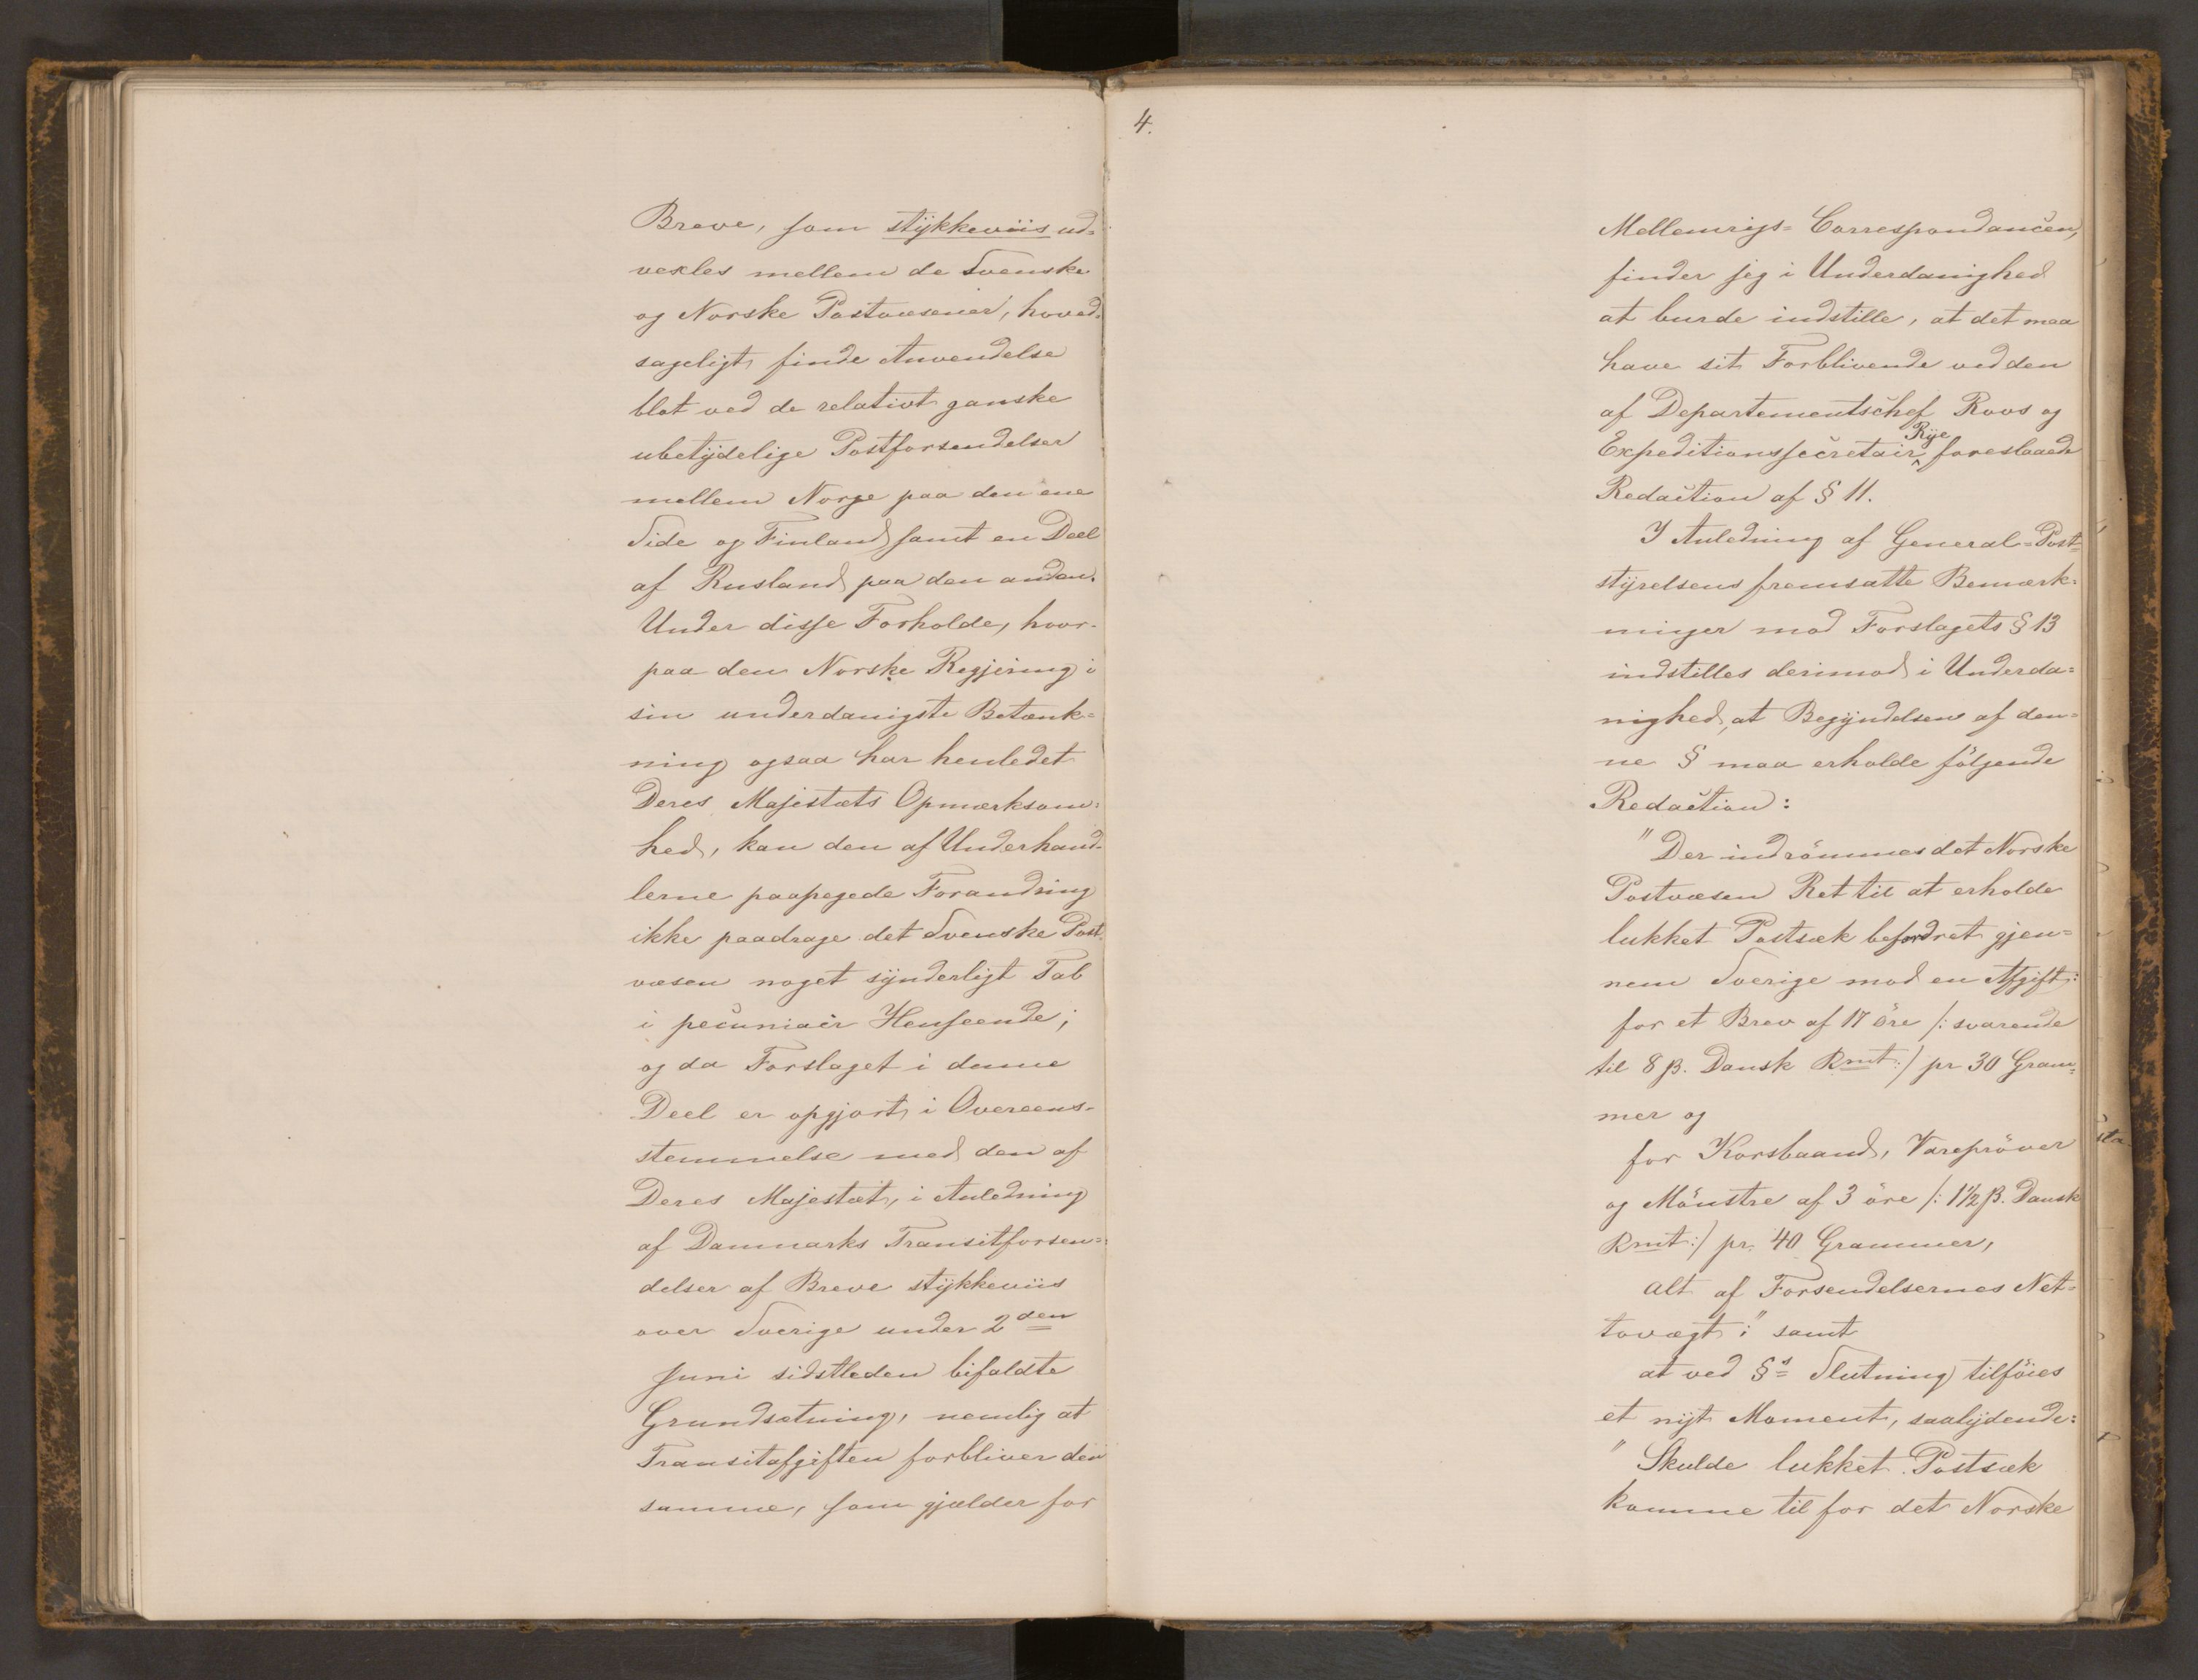 Breve, som stykkeviis ud=
vexles mellem de Svenske
og Norske Postvæsener, hoved=
sageligt finde Anvendelse
blot ved de relativt ganske
ubetydelige Postforsendelser
mellem Norge paa den ene
Side og Finland samt en Deel
af Rusland paa den anden.
Under disse Forholde, hvor-
paa den Norske Regjering i
sin underdanigste Betænk=
ning ogsaa har henledet
Deres Majestæts Opmærksom=
hed, kan den af Underhand-
lerne paapegede Forandring
ikke paadrage det Svenske Post-
væsen noget synderligt Tab
i pecuniair Henseende;
og da Forslaget i denne
Deel er opgjort i Overeens-
stemmelse med den af
Deres Majestæt, i Anledning
af Danmarks Transitforsen=
delser af Breve stykkeviis
over Sverige under 2den
Juni sidstleden bifaldte
Grundsætning, nemlig at
Transitafgiften forbliver den
samme, som gjælder for
4.
Mellemrigs=Correspondancen,
finder jeg i Underdanighed
at burde indstille, at det maa
have sit Forblivende ved den
af Departementschef Roos og
Expeditionssecretair Rye foreslaaede
Redaction af § 11.
I Anledning af General=Post=
styrelsens fremsatte Bemærk=
ninger mod Forslagets § 13
indstilles derimod i Underda=
nighed, at Begyndelsen af den=
ne § maa erholde følgende
Redaction:
"Der indrömmes det Norske
Postvæsen Ret til at erholde
lukket Postsæk befordret gjen=
nem Sverige mod en Afgift:
for et Brev af 17 öre /: svarende
til 8 β. Dansk Rmt:/ pr 30 Gram=
mer og
for Korsbaand, Varepröver
og Mönstre af 3 öre /: 1 1/2 β. Dansk
Rmt:/ pr. 40 Grammer,
alt af Forsendelsernes Net=
tovægt;" samt
at ved §s Slutning tilföies
et nyt Moment, saalydende:
"Skulde lukket Postsæk
komme til for det Norske